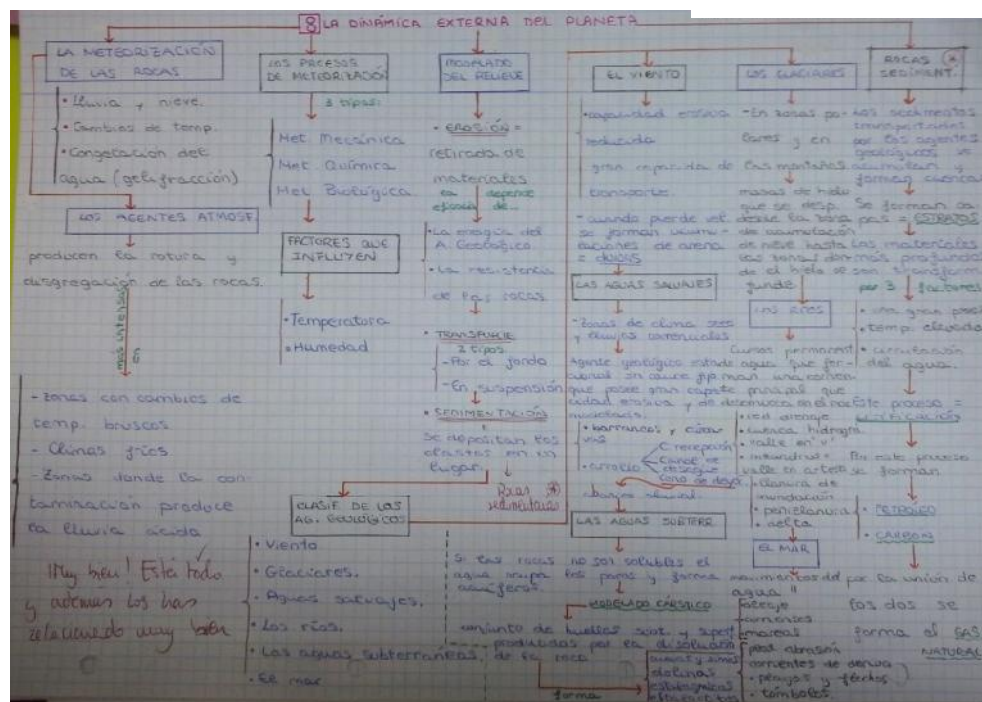 8 LA DINÁMICA EXTERNA DEL PLANETA
LA METEORIZACIÓN
DE LAS ROCAS
• Lluvia y nieve.
• Cambios de temp.
• Congelación del
agua (gelifracción)
LOS AGENTES ATMOSF.
producen la rotura y
disgregación de las rocas.
más intensa
en
- Zonas con cambios de
temp. bruscos
- Climas fríos
- Zonas donde la con-
taminación produce
la lluvia ácida
¡Muy bien! Está todo
y además los has
relacionado muy bien
LOS PROCESOS
DE METEORIZACIÓN
3 tipos:
Met Mecánica
Met Química
Met Biológica
FACTORES QUE
INFLUYEN
• Temperatora
• Humedad
MODELADO
DEL RELIEVE
• EROSIÓN =
retirada de
materiales
la eficacia depende
de...
• La energía del
A. Geológico
• La resistencia
de las rocas
• TRANSPORTE
2 tipos
- Por el fondo
- En suspensión
• SEDIMENTACIÓN
se depositan los
clastos en un
lugar.
Rocas
sedimentarias
CLASIF DE LOS
AG. GEOLÓGICOS
• Viento
• Glaciares.
• Aguas salvajes.
• Los ríos.
• Las aguas subterráneas.
• El mar
EL VIENTO
• capacidad erosiva
reducida
gran capacidad de
transporte
- cuando pierde vel.
se forman acumu-
laciones de arena
= dunas
LAS AGUAS SALVAJES
- Zonas de clima seco
y lluvias torrenciales
Agente geológico
sin cauce fijo
que posee gran capaci-
dad erosiva y de
• barrancos y cárca-
vas
• arroyo
C recepción
Canal de
desagüe
Cono de deye.
LAS AGUAS SUBTERR
Si las rocas no son solubles el
agua ocupa los poros y forma
acuíferos.
MODELADO CÁRSICO
conjunto de huellas
producidas por la disolución
de la roca
forma
dolinas
LOS GLACIARES
- En zonas po-
lares y en
las montañas
masas de hielo
que se desp.
desde la zona
de acumulación
de nieve hasta
las zonas don-
de el hielo se
funde
LOS RÍOS
Cursos permanent
agua que for-
man una corrien
principal que
desemboca en el mar
• red drenaje
• cuenca hidrográ
• valle en "v"
• meandros
valle en artesa
• llanura de
inundación
• penillanura
• delta
EL MAR
movimientos del
agua
oleaje
corrientes
mareas
plat abrasión
corrientes de deriva
• playas y flechas
• tómbolos.
ROCAS
SEDIMENT.
Los sedimentos
transportados
por los agentes
geológicos se
acumulan y
forman cuencas
Se forman ca-
pas = ESTRATOS
Los materiales
más profundos
son transform
por 3 factores
• una gran pres
• temp. elevada
• circulación
del agua.
Este proceso =
LITIFICACIÓN
En este proceso
se forman
• PETRÓLEO
• CARBÓN
por la unión de
los dos se
forma el GAS
NATURAL